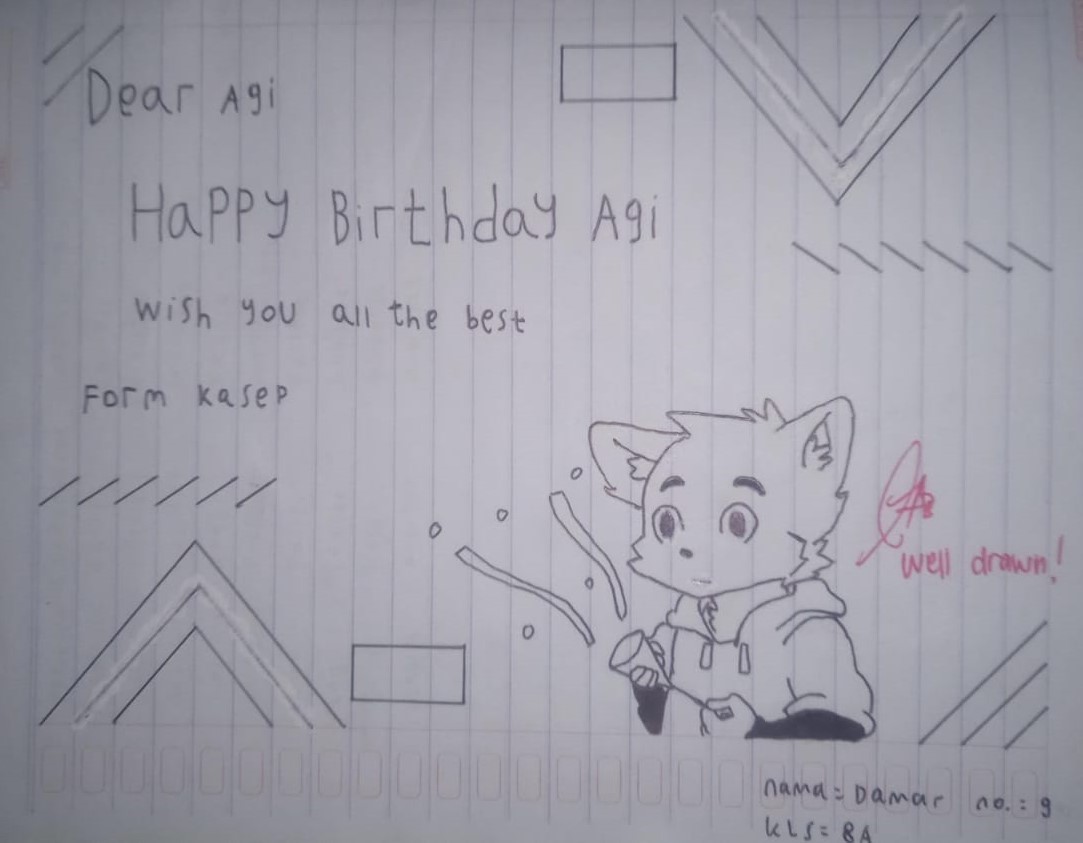 Dear Agi
Happy Birthday Agi
wish you all the best
Form kasep
well drawn!
nama = Damar no. : 9
kLS = 8A